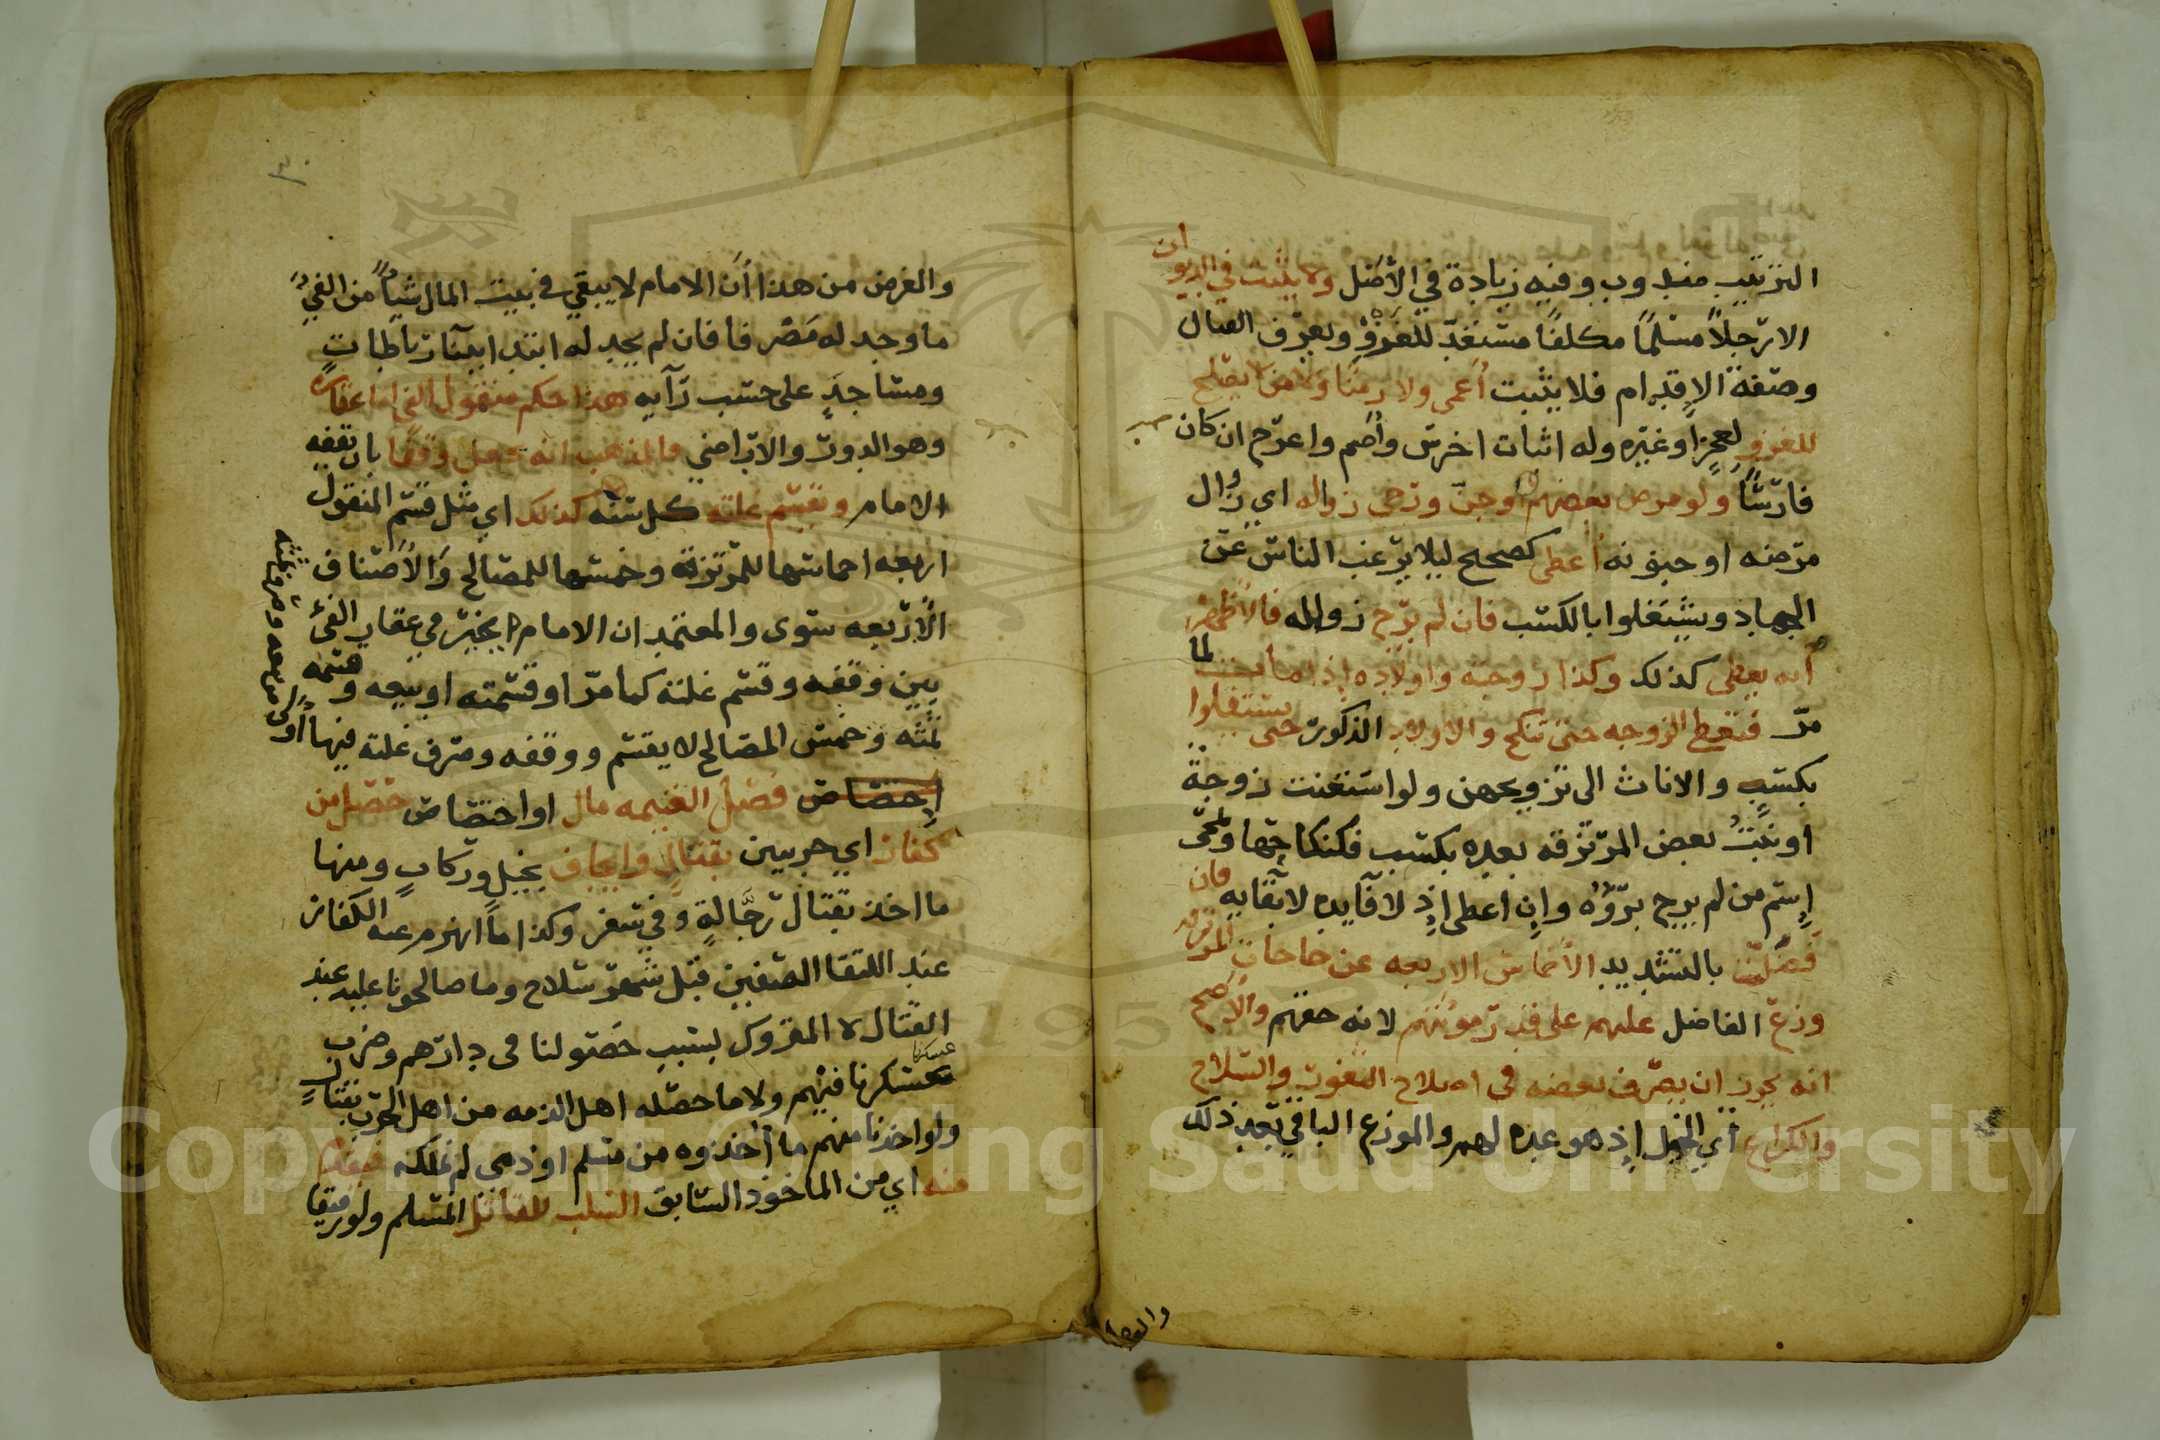 الترتيب مندوب وفيه زيادة في الاصل ولا يثبت في الديوان
الا رجلاً مسلمًا مكلفًا مستعدّ للغزو ويعرّف القتال
وصفة الاقدام فلا يثبت اعمى ولا زمنا ولا من لا يصلح
للغزو لعجز او غيره وله اثبات اخرس واصم واعرج ان كان
فارسًا ولو مرض بعضهم او جن ورجى زواله اي زوال
مرضه او جنونه اعطى كصحيح ليلا يرغب الناس عن
الجهاد ويشتغلوا بالكسب فان لم يرج زواله فالاظهر
انه يعطى كذلك وكذا زوجته واولاده اذا مات لما
مرّ فتعط الزوجه حتى تنكح والاولاد الذكور حتى يستقلوا
بكسب والاناث الى تزويجهن ولو استغنت زوجة
او بنت بعض المرتزقه بعده بكسب فكنكاحها ويمحى
اسم من لم يرج برؤه وان اعطى اذ لا فآيده لابقايه فان
فضلت بالتشديد الاخماس الاربعه عن حاجات المرتزقه
وزع الفاضل عليهم على قدر مؤنتهم لانه حقهم والاصح
انه يجوز ان يصرف بعضه في اصلاح الثغور والسلاح
والكراع اي الخيل اذ هو عده لهم والموزع الباقي بعد ذلك
والغرض
٣٠
والغرض من هذا أن الامام لا يبقي في بيت المال شياً من الفيء
ما وجد له مصرفا فان لم يجد له ابتدا ببنا رباطات
ومساجد على حسب رآيه هذا حكم منقول الفي اما عقاره
وهو الدور والاراضي فالمذهب انه يجعل وقفا بان يقفه
الامام وتقسم غلته كل سنة كذلك اي مثل قسم المنقول
اربعه اخماسها للمرتزقة وخمسها للمصالح والاصناف
الاربعه سوى والمعتمد ان الامام يخير في عقار الفئ
بين وقفه وقسم غلته كما مرّ او قسمته او بيعه وقسمه
ثمنه وخمس المصالح لا يقسم ووقفه وصرف غلته فيها اولى من بيعه وصرف ثمنه
اختصاص فصل الغنيمه مال او اختصاص حصل من
كفار اي حربيين بقتال وايجاف بخيل وركاب ومنها
ما اخذ بقتال رجّالة وفي سفن وكذا ما انهزم عنه الكفار
عند التقا الصفين قبل شهر سلاح وما صالحونا عليه عند
القتال لا المتروك بسبب حصولنا في دارهم وضرب
عسكرنا
عسكرنا فيهم ولا ما حصله اهل الذمه من اهل الحرب بقتال
ولو اخذنا منهم ما أخذوه من مسلم او ذمي لم نملكه فيقدم
منه اي من الماخوذ السابق السلب للقاتل المسلم ولو رقيقا